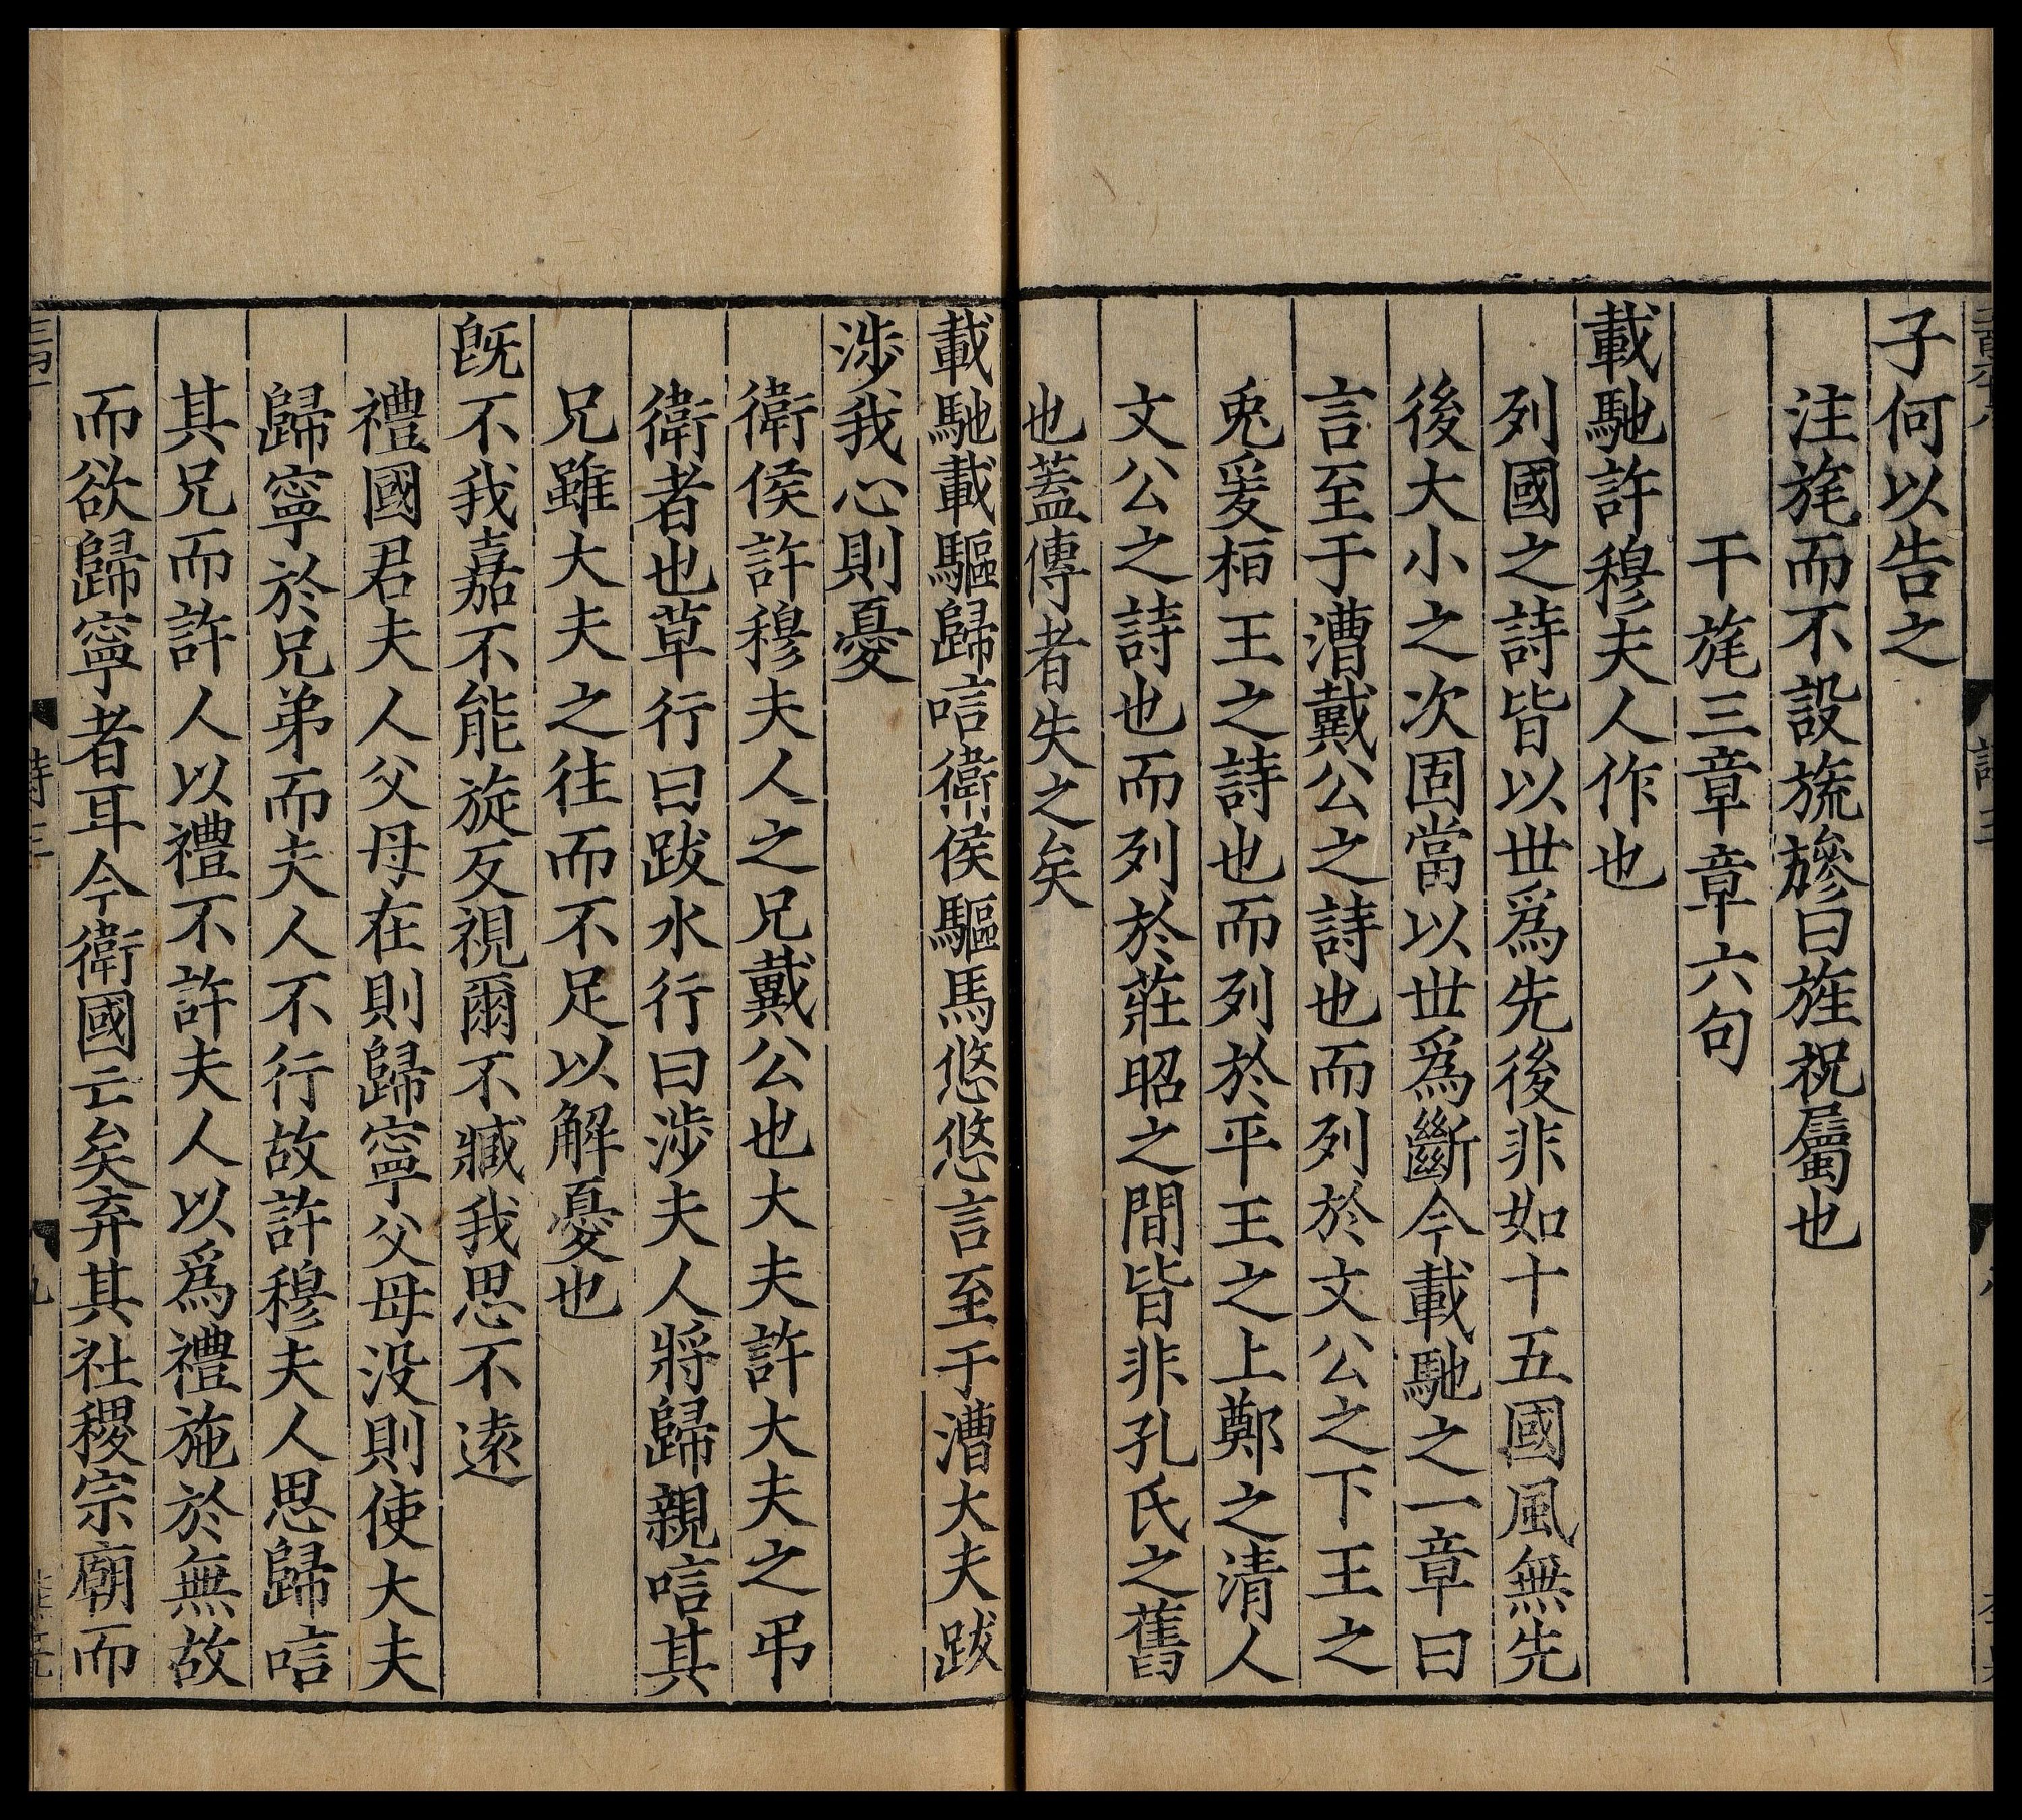 子何以告之
注旄而不設旒縿曰旌祝屬也
干旄三章章六句
載馳許穆夫人作也
列國之詩皆以世爲先後非如十五國風無先
後大小之次固當以世爲斷今載馳之一章曰
言至于漕戴公之詩也而列於文公之下王之
兎爰桓王之詩也而列於平王之上鄭之清人
文公之詩也而列於莊昭之間皆非孔氏之舊
也蓋傳者失之矣
載馳載驅歸唁衛侯驅馬悠悠言至于漕大夫跋
涉我心則憂
衛侯許穆夫人之兄戴公也大夫許大夫之弔
衛者也草行曰跋水行曰涉夫人將歸親唁其
兄雖大夫之往而不足以解憂也
旣不我嘉不能旋反視爾不臧我思不遠
禮國君夫人父母在則歸寧父母没則使大夫
歸寧於兄弟而夫人不行故許穆夫人思歸唁
其兄而許人以禮不許夫人以爲禮施於無故
而欲歸寧者耳今衛國亡矣弃其社稷宗廟而